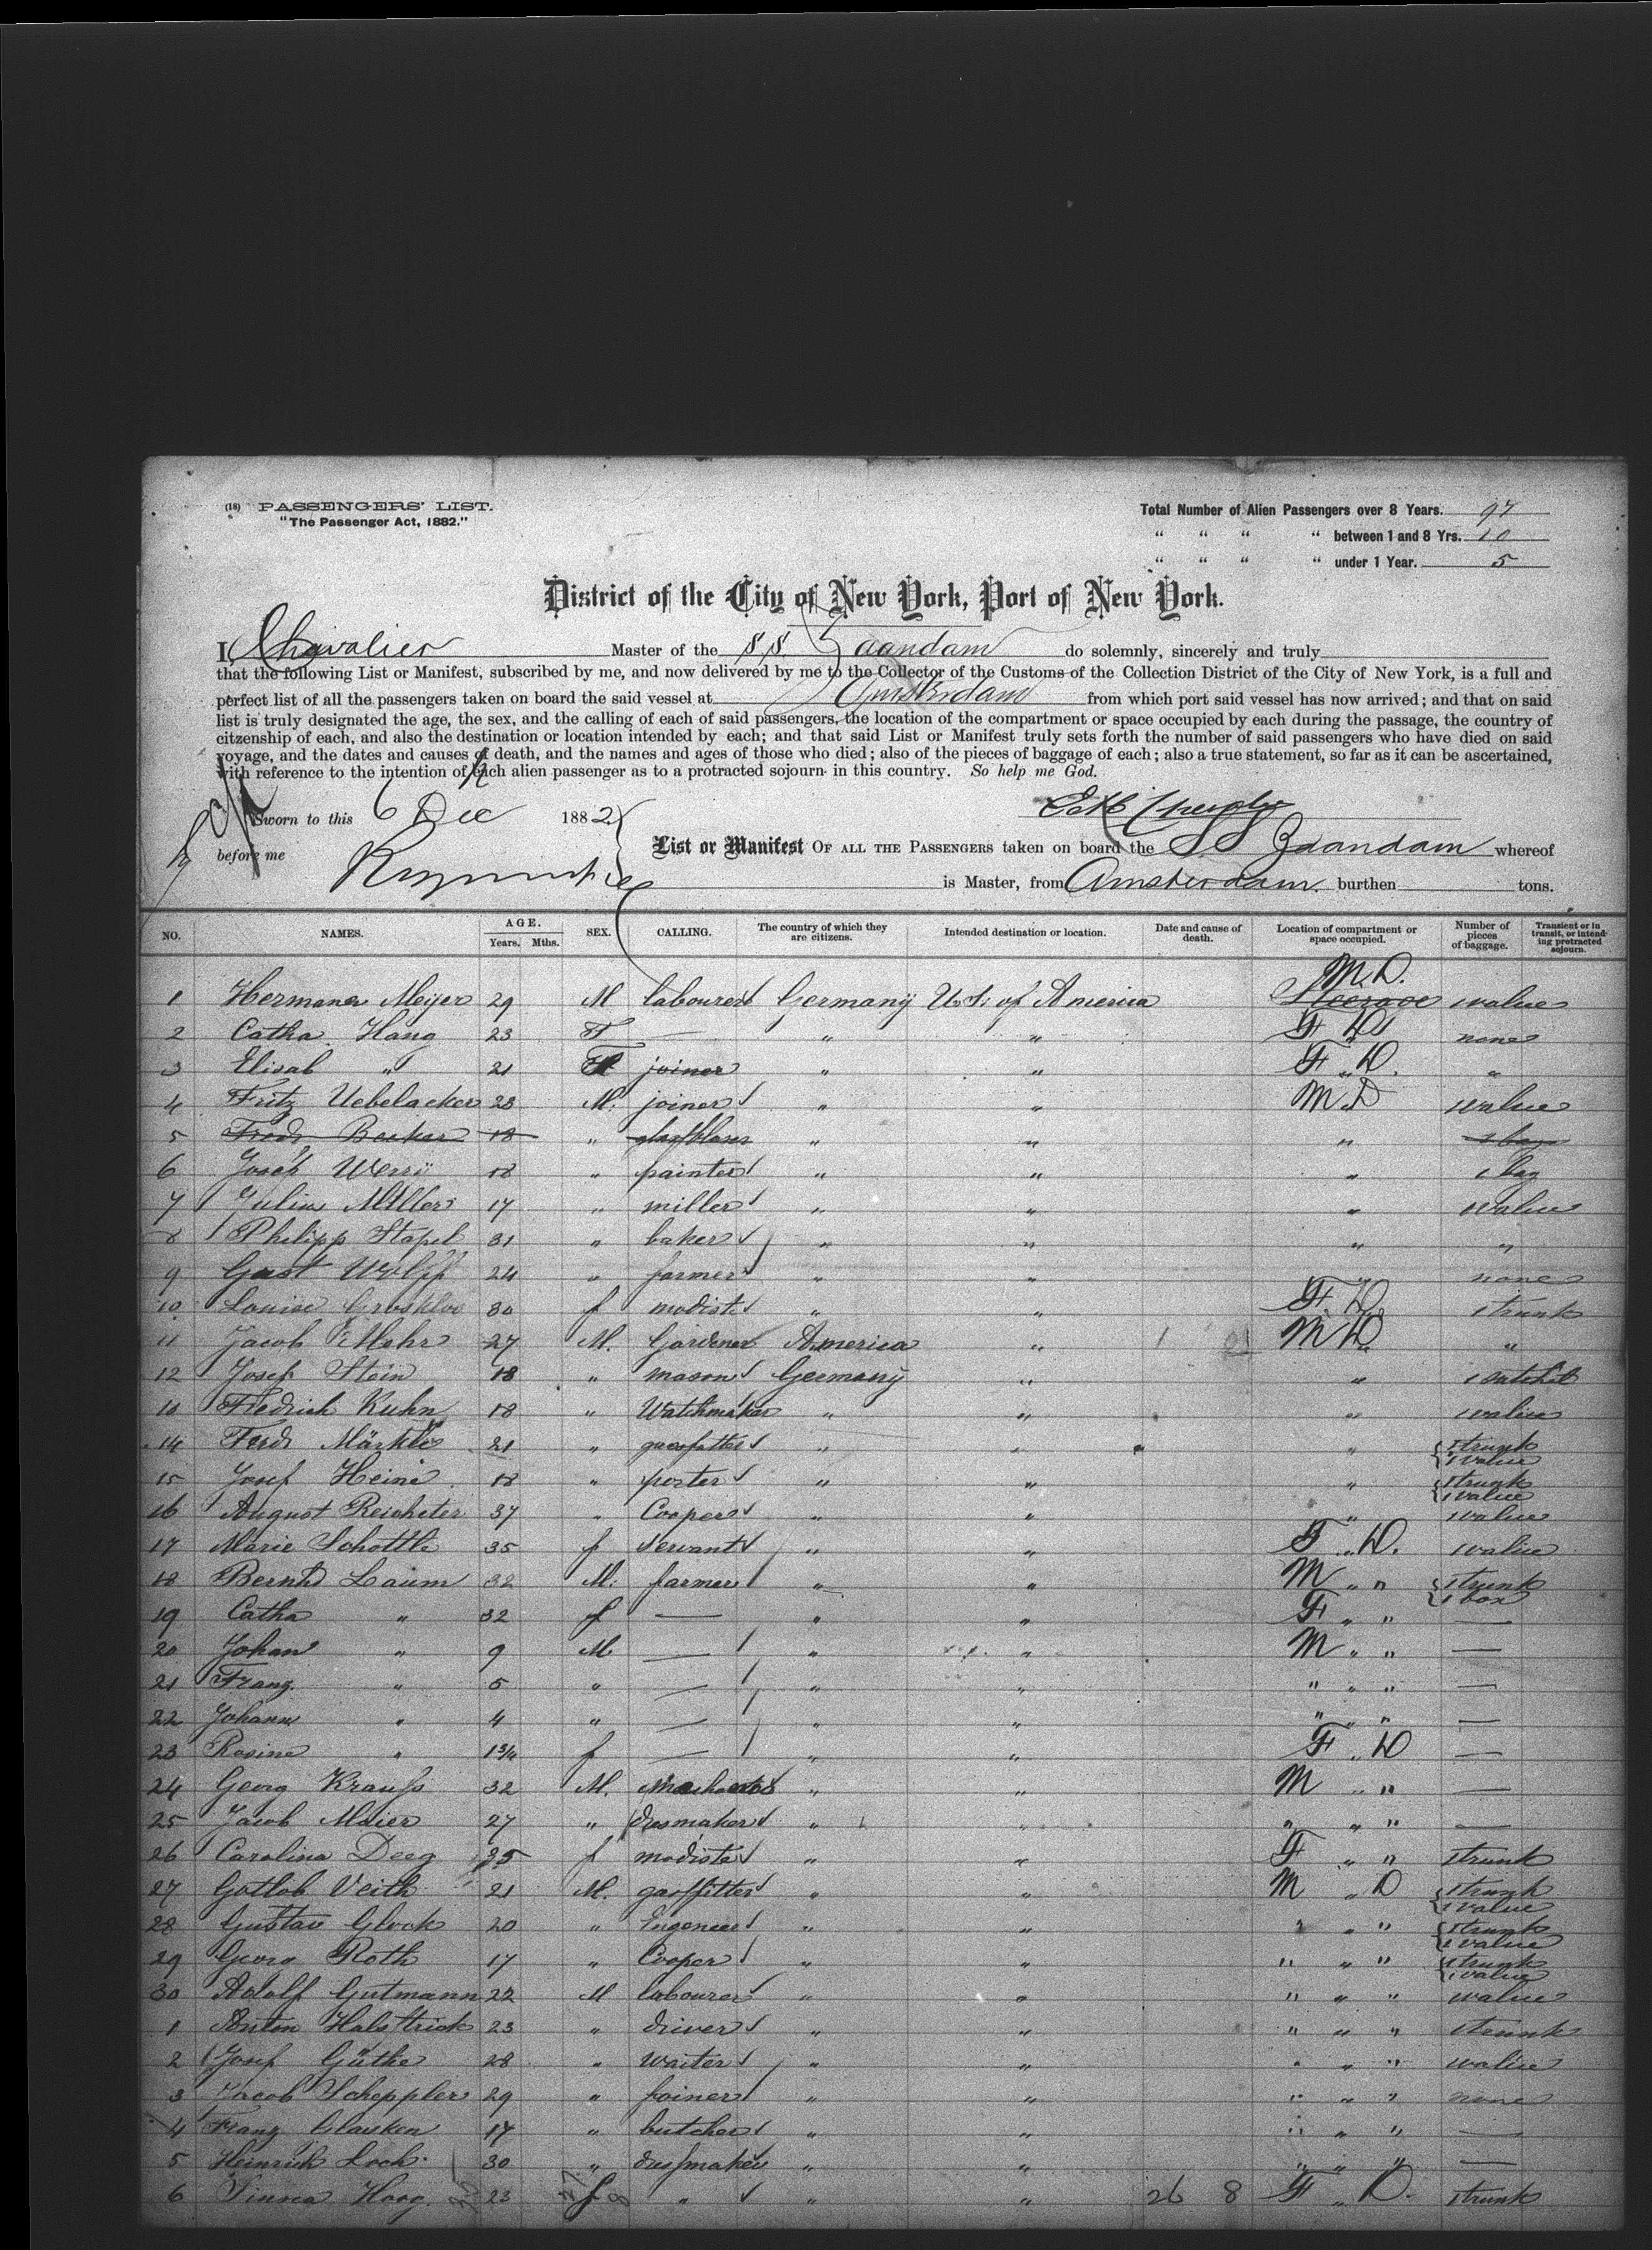 (18) PASSENGERS' LIST.
"The Passenger Act, 1882."
Total Number of Alien Passengers over 8 Years. 97
" " " " between 1 and 8 Yrs. 10
" " " " under 1 Year. 5
District of the City of New York, Port of New York.
I, Chevalier Master of the S.S. Zaandam do solemnly, sincerely and truly
that the following List or Manifest, subscribed by me, and now delivered by me to the Collector of the Customs of the Collection District of the City of New York, is a full and
perfect list of all the passengers taken on board the said vessel at Amsterdam from which port said vessel has now arrived; and that on said
list is truly designated the age, the sex, and the calling of each of said passengers, the location of the compartment or space occupied by each during the passage, the country of
citzenship of each, and also the destination or location intended by each; and that said List or Manifest truly sets forth the number of said passengers who have died on said
voyage, and the dates and causes of death, and the names and ages of those who died; also of the pieces of baggage of each; also a true statement, so far as it can be ascertained,
with reference to the intention of each alien passenger as to a protracted sojourn in this country. So help me God.
Sworn to this 6 Dec 1882
before me
List or Manifest OF ALL THE PASSENGERS taken on board the SS Zaandam whereof
is Master, from Amsterdam. burthen tons.
NO. NAMES. AGE. Years. Mths. SEX. CALLING. The country of which they are citizens. Intended destination or location. Date and cause of death. Location of compartment or space occupied. Number of pieces of baggage. Transient or in transit, or intending protracted sojourn.
M.D.
1 Hermann Meijer 29 M labourer Germany U.S. of America Steerage 1 valise
2 Catha. Haug 23 F — " " F D none
3 Elisab " 21 F joiner " " F " D. "
4 Fritz Uebelacker 28 M. joiner " " M.D 1 valise
5 Fredr Becker 18 " glassblaser " " " 1 bag
6 Josef 18 " painter " " " 1 bag
7 Julius Müller 17 " miller " " " 1 valise
8 Philipp Stapel 31 " baker " " " "
9 Gust Wolff 24 " farmer " " " none
10 Louise 30 f modiste " " F. D. 1 trunk
11 Jacob Mohr 27 M. Gardener America " M D "
12 Josef Stein 18 " mason Germany " " 1 satchel
13 Fredrich Kuhn 18 " Watchmaker " " " 1 valise
14 Ferd. Märkle 21 " " " " 1 trunk 1 valise
15 Josef Heine 18 " porter " " " 1 trunk 1 valise
16 August Reicheter 37 " Cooper " " " 1 valise
17 Marie Schottle 35 f servant " " F " D. 1 valise
18 Bernhd Laum 32 M. farmer " " M " " 1 trunk 1 box
19 Catha " 32 f — " " F " " —
20 Johan " 9 M — " " M " " —
21 Franz " 5 " — " " " " " —
22 Johann " 4 " — " " " " " —
23 Rosine " 1 3/4 f — " " F " D —
24 Georg Krauss 32 M. " " M " " —
25 Jacob Maier 27 " dresmaker " " " " " —
26 Carolina Deeg 25 f modiste " " F " " 1 trunk
27 Gotlob Veith 21 M. gasfitter " " M " D 1 trunk 1 valise
28 Gustav Glock 20 " Engeneer " " " " " 1 trunk 1 valise
29 Georg Roth 17 " Cooper " " " " " 1 trunk 1 valise
30 Adolf Gutmann 22 M labourer " " " " " 1 valise
1 Anton Halstrick 23 " driver " " " " " 1 trunk
2 Josef Güthe 28 " waiter " " " " " 1 valise
3 Jacob Scheppler 29 " joiner " " " " " none
4 Franz Clauken 17 " butcher " " " " " —
5 Heinrich Loch 30 " dressmaker " " " " " —
6 Haag. 23 f " " " 26 8 F " D. 1 trunk